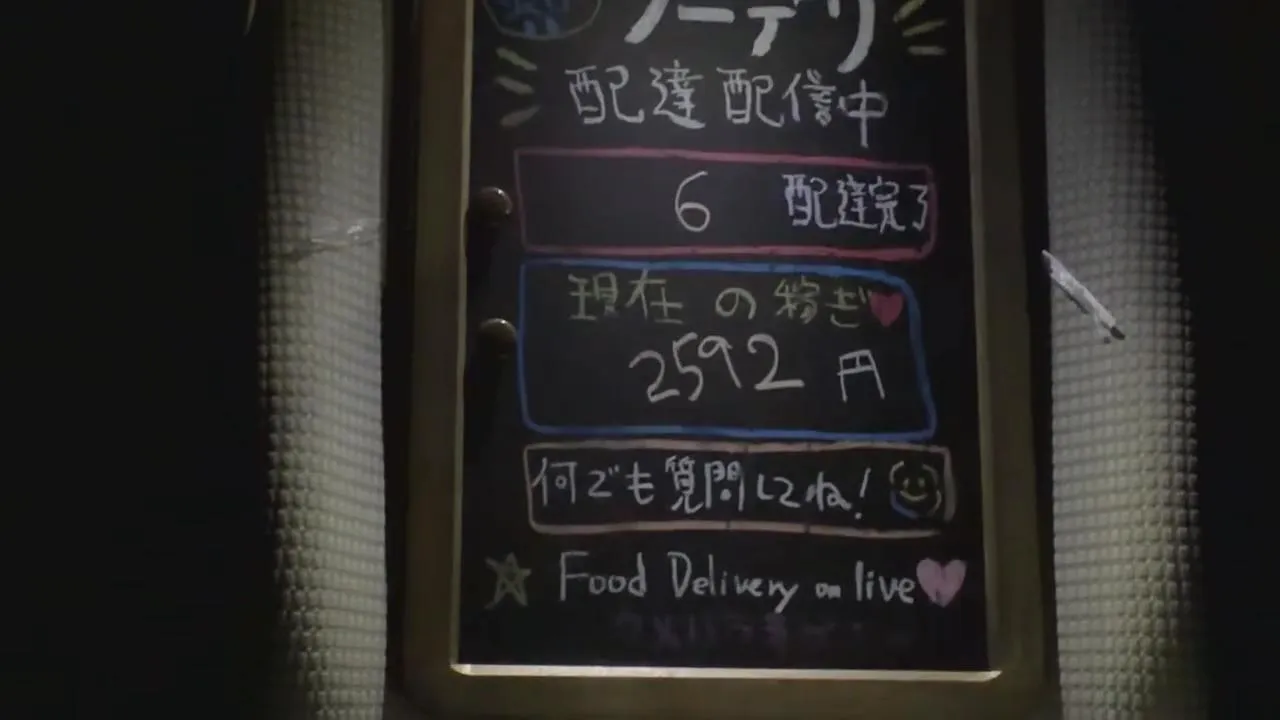 ノーデリ
配達配信中
6 配達完了
現在の稼ぎ
2592 円
何でも質問してね!
Food Delivery on live